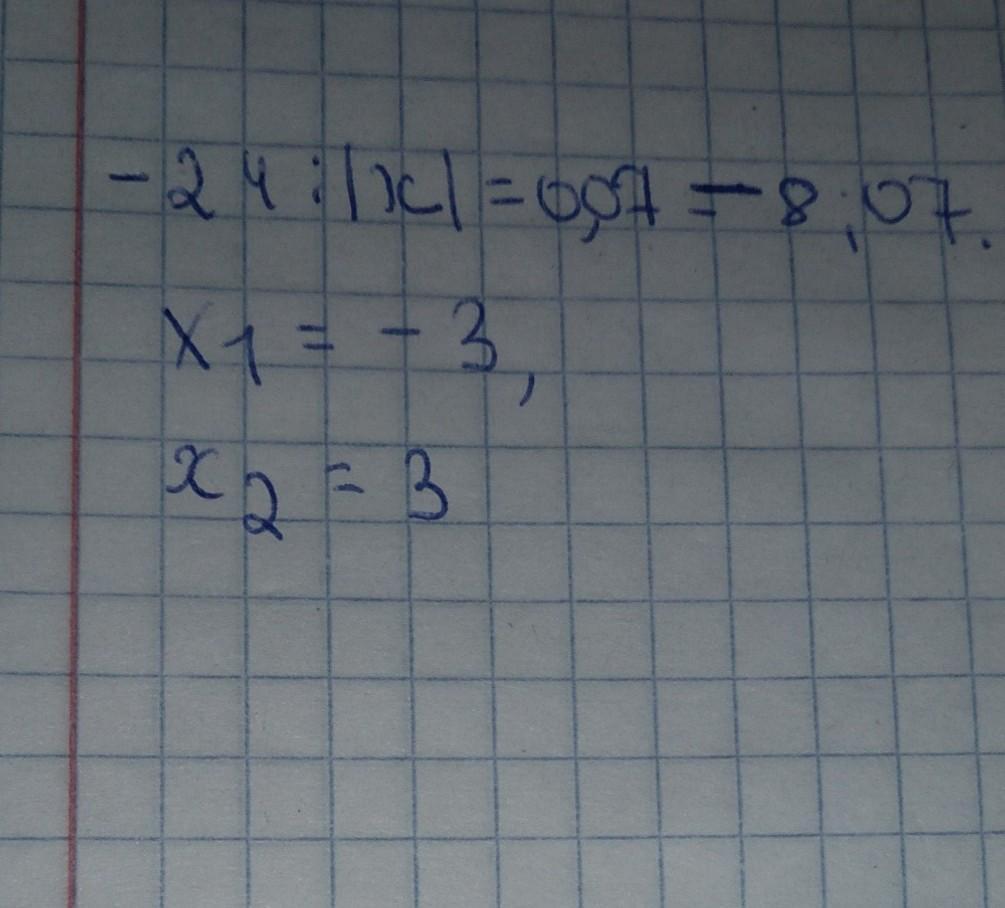 -24:|x|=0,07=-8,07.
x1=-3,
x2=3